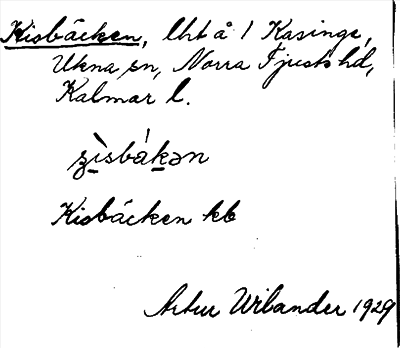 Kisbäcken, lht å 1 Kasinge,
Ukna sn, Norra Tjusts hd,
Kalmar l.
ʒìsbákən
Kisbäcken kb
Artur Wilander 1929